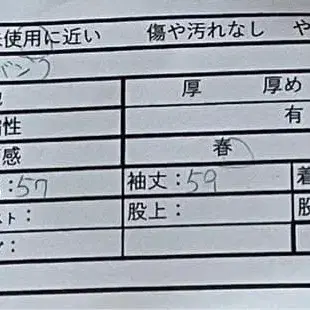 使用に近い 傷や汚れなし や
厚 厚め
性 有
感 春
：57 袖丈：59 着
スト： 股上： 股
：